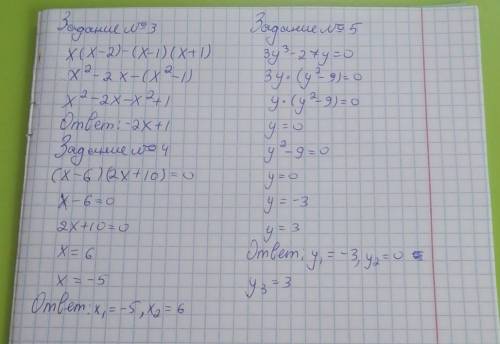 Задание № 3
x(x-2)-(x-1)(x+1)
x²-2x-(x²-1)
x²-2x-x²+1
Ответ: -2x+1
Задание № 4
(x-6)(2x+10)=0
x-6=0
2x+10=0
x=6
x=-5
Ответ: x₁=-5, x₂=6
Задание № 5
3y³-27y=0
3y·(y²-9)=0
y·(y²-9)=0
y=0
y²-9=0
y=0
y=-3
y=3
Ответ: y₁=-3, y₂=0
y₃=3